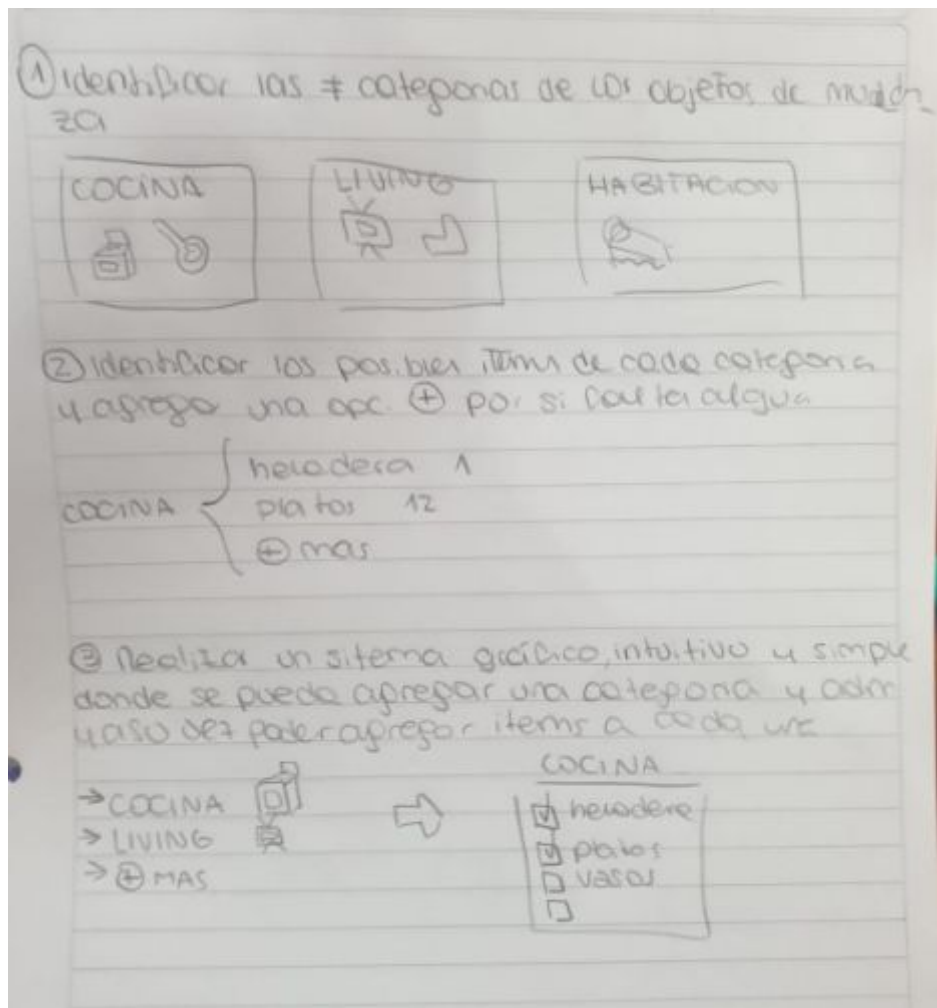 ① Identificar las ≠ categorias de los objetos de mudan
za
COCINA LIVING HABITACION
② Identificar los posibles items de cada categoria
y agrego una opc. ⊕ por si falta algun
COCINA { heladera 1
platos 12
⊕ mas
③ Realizar un sitema gráfico, intuitivo y simple
donde se pueda agregar una categoria y adm
y a su vez poder agregar items a cada un
→ COCINA
→ LIVING
→ ⊕ MAS
⇨
COCINA
☑ heladera
☑ platos
☐ vasos
☐